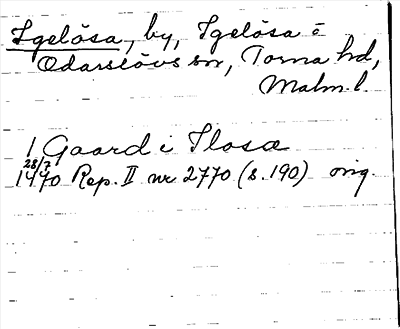 Igelösa, by, Igelösa o
Odarslövs sn, Torna hd,
Malm. l.
1 Gaard i Ilosæ
28/7
1470 Rep. II nr 2770 (s. 190) orig.